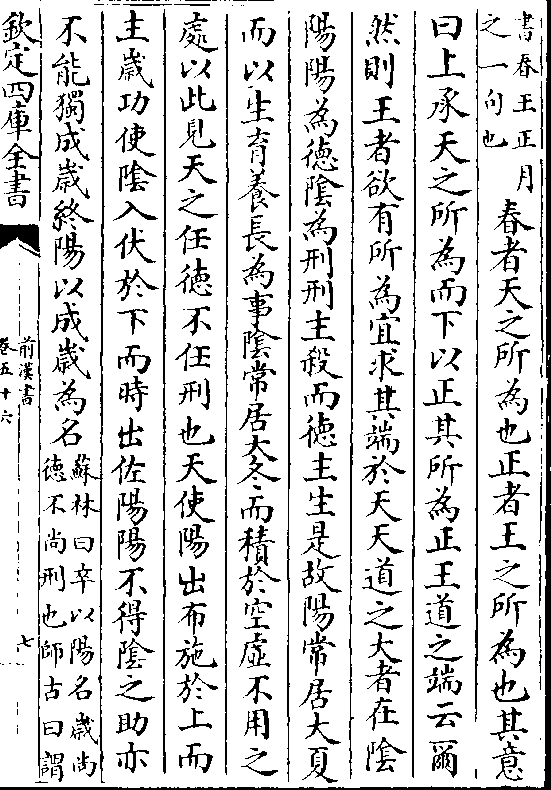 書春王正月
之一句也
春者天之所為也正者王之所為也其意
曰上承天之所為而下以正其所為正王道之端云爾
然則王者欲有所為宜求其端於天天道之大者在隂
陽陽為徳隂為刑刑主殺而徳主生是故陽常居大夏
而以生育養長為事隂常居大冬而積於空虚不用之
處以此見天之任徳不任刑也天使陽出布施於上而
主歳功使隂入伏於下而時出佐陽陽不得隂之助亦
不能獨成歳終陽以成歳為名
蘇林曰卒以陽名歳尚
徳不尚刑也師古曰謂
欽定四庫全書
前漢書
卷五十六
七